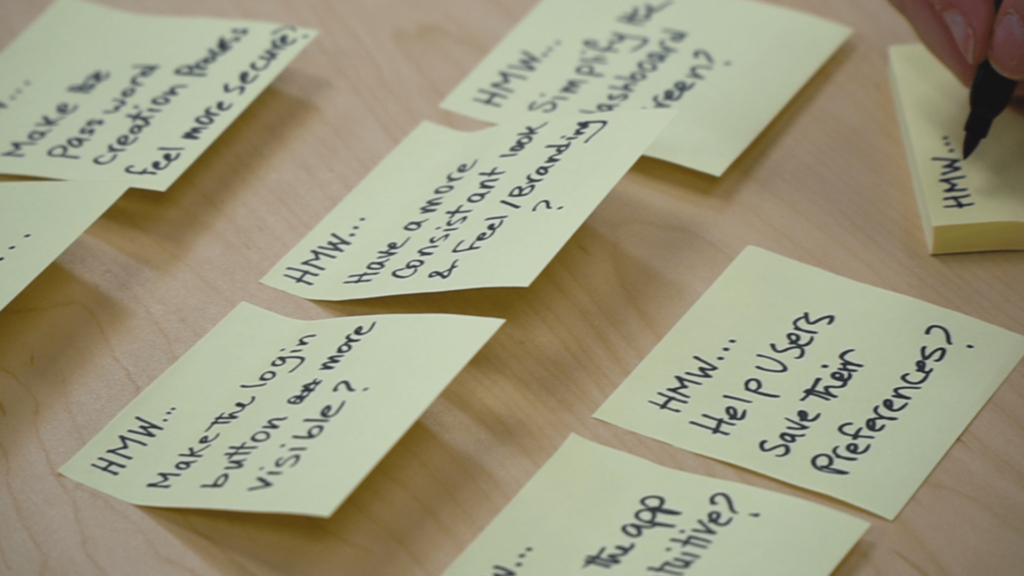 ...
Make the
Password
creation Process
feel more secure?
...
HMW...
Simplify the
dashboard
reen?
HMW...
Have a more
Consistant look
& Feel / Branding
?
HMW...
HMW...
Make the login
button more
visible?
HMW...
Help Users
Save Their
Preferences?
W...
the app
tuitive?